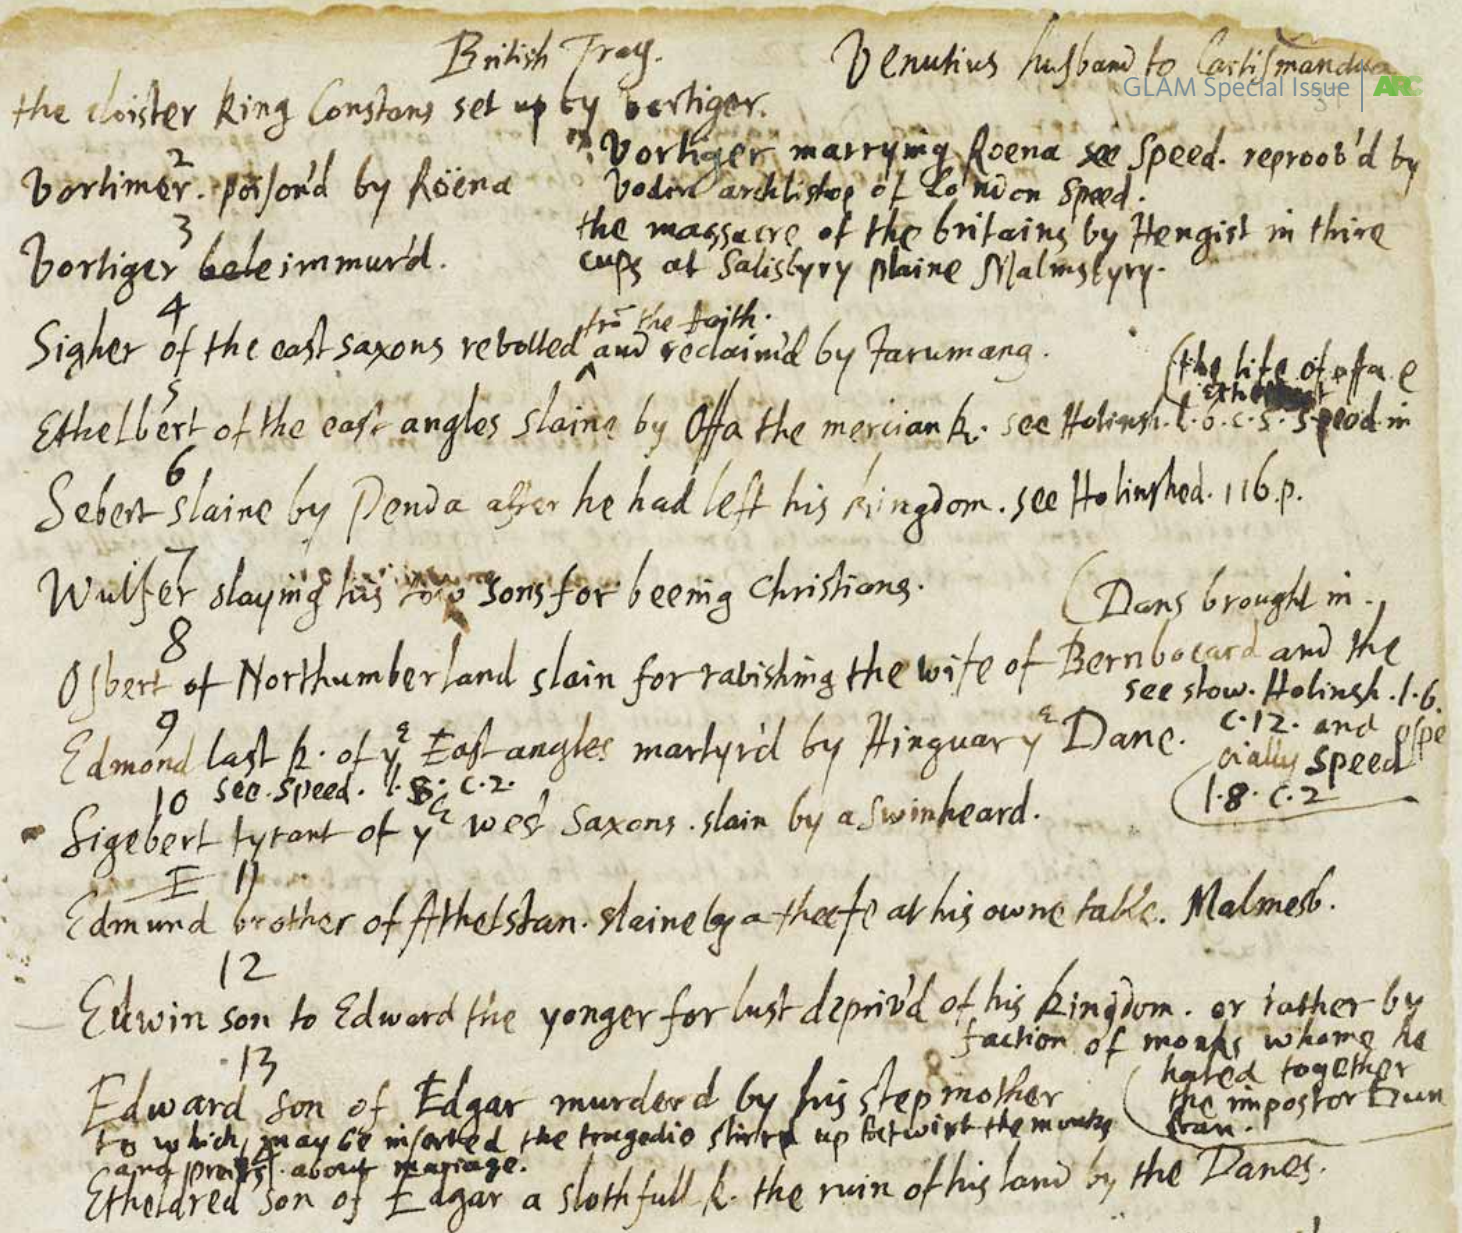 British Trag.
Venutius husband to Cartismandua
GLAM Special Issue | ARC
the cloister king Constans set up by vortiger.
Vortiger marrying Roena see Speed. reproov'd by
Vodin archbishop of London Speed.
2
Vortimer. poison'd by Roena
the massacre of the britains by Hengist in thire
cups at Salisbyry plaine Malmsbyry.
3
Vortiger immur'd.
4
frō the faith.
Sigher of the east saxons revolted and reclaim'd by Jarumang.
(the life of offa e
5
Ethelbert of the east angles slaine by Offa the mercian k. see Holinsh. l. 6. c. 5. Speed in
6
Sebert slaine by Penda after he had left his kingdom. see Holinshed. 116 p.
7
Wulfer slaying his tow sons for beeing Christians.
(Dans brought in.
8
Osbert of Northumberland slain for ravishing the wife of Bernbocard and the
see stow. Holinsh. l. 6.
c. 12. and espe
cially speed
l. 8. c. 2
9
Edmond last k. of ye East angles martyr'd by Hinguar ye Dane.
see. speed. l. 8. c. 2.
10
Sigebert tyrant of ye west Saxons. slain by a swinheard.
11
Edmund brother of Athelstan. slaine by a theefe at his owne table. Malmesb.
12
Edwin son to Edward the yonger for lust depriv'd of his kingdom. or rather by
faction of monks whome he
hated together
the impostor Dun
stan.
13
Edward son of Edgar murderd by his step mother
to which may be inserted the tragedie stirrd up betwixt the monks
and preists about mariage.
Etheldred son of Edgar a slothfull k. the ruin of his land by the Danes.